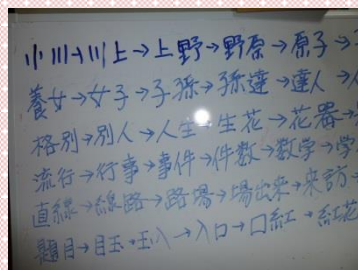 小川→川上→上野→野原→原子→
養女→女子→子孫→孫達→達人→
格別→別人→人生→生花→花器→
流行→行事→事件→件数→数字→学
直線→線路→路場→場出来→来訪→
題目→目玉→玉入→入口→口紅→紅花